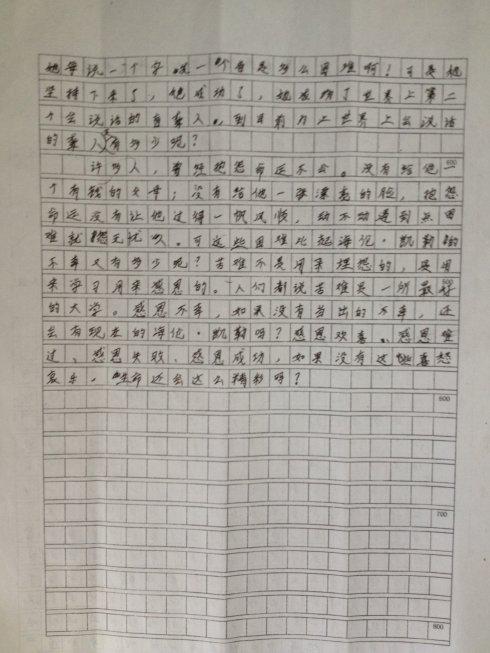 她每说一个字或一个音是多么困难啊！可是她
坚持下来了，她成功了，她成为了世界上第二
个会说话的盲聋人。到目前为止世界上会说话
的聋人有多少呢？
许多人，曾经抱怨命运不公。没有给他一
400
个有钱的父母；没有给他一张漂亮的脸，抱怨
命运没有让他过得一帆风顺，动不动遇到点困
难就怨天忧人。可这些困难比起海伦·凯勒的
不幸又有多少呢？苦难不是用来埋怨的，是用
来学习用来感恩的。人们都说苦难是一所最好
500
的大学。感恩不幸，如果没有当出的不幸，还
会有现在的海伦·凯勒吗？感恩欢喜、感恩难
过、感恩失败、感恩成功，如果没有这些喜怒
哀乐，生命还会这么精彩吗？
600
700
800